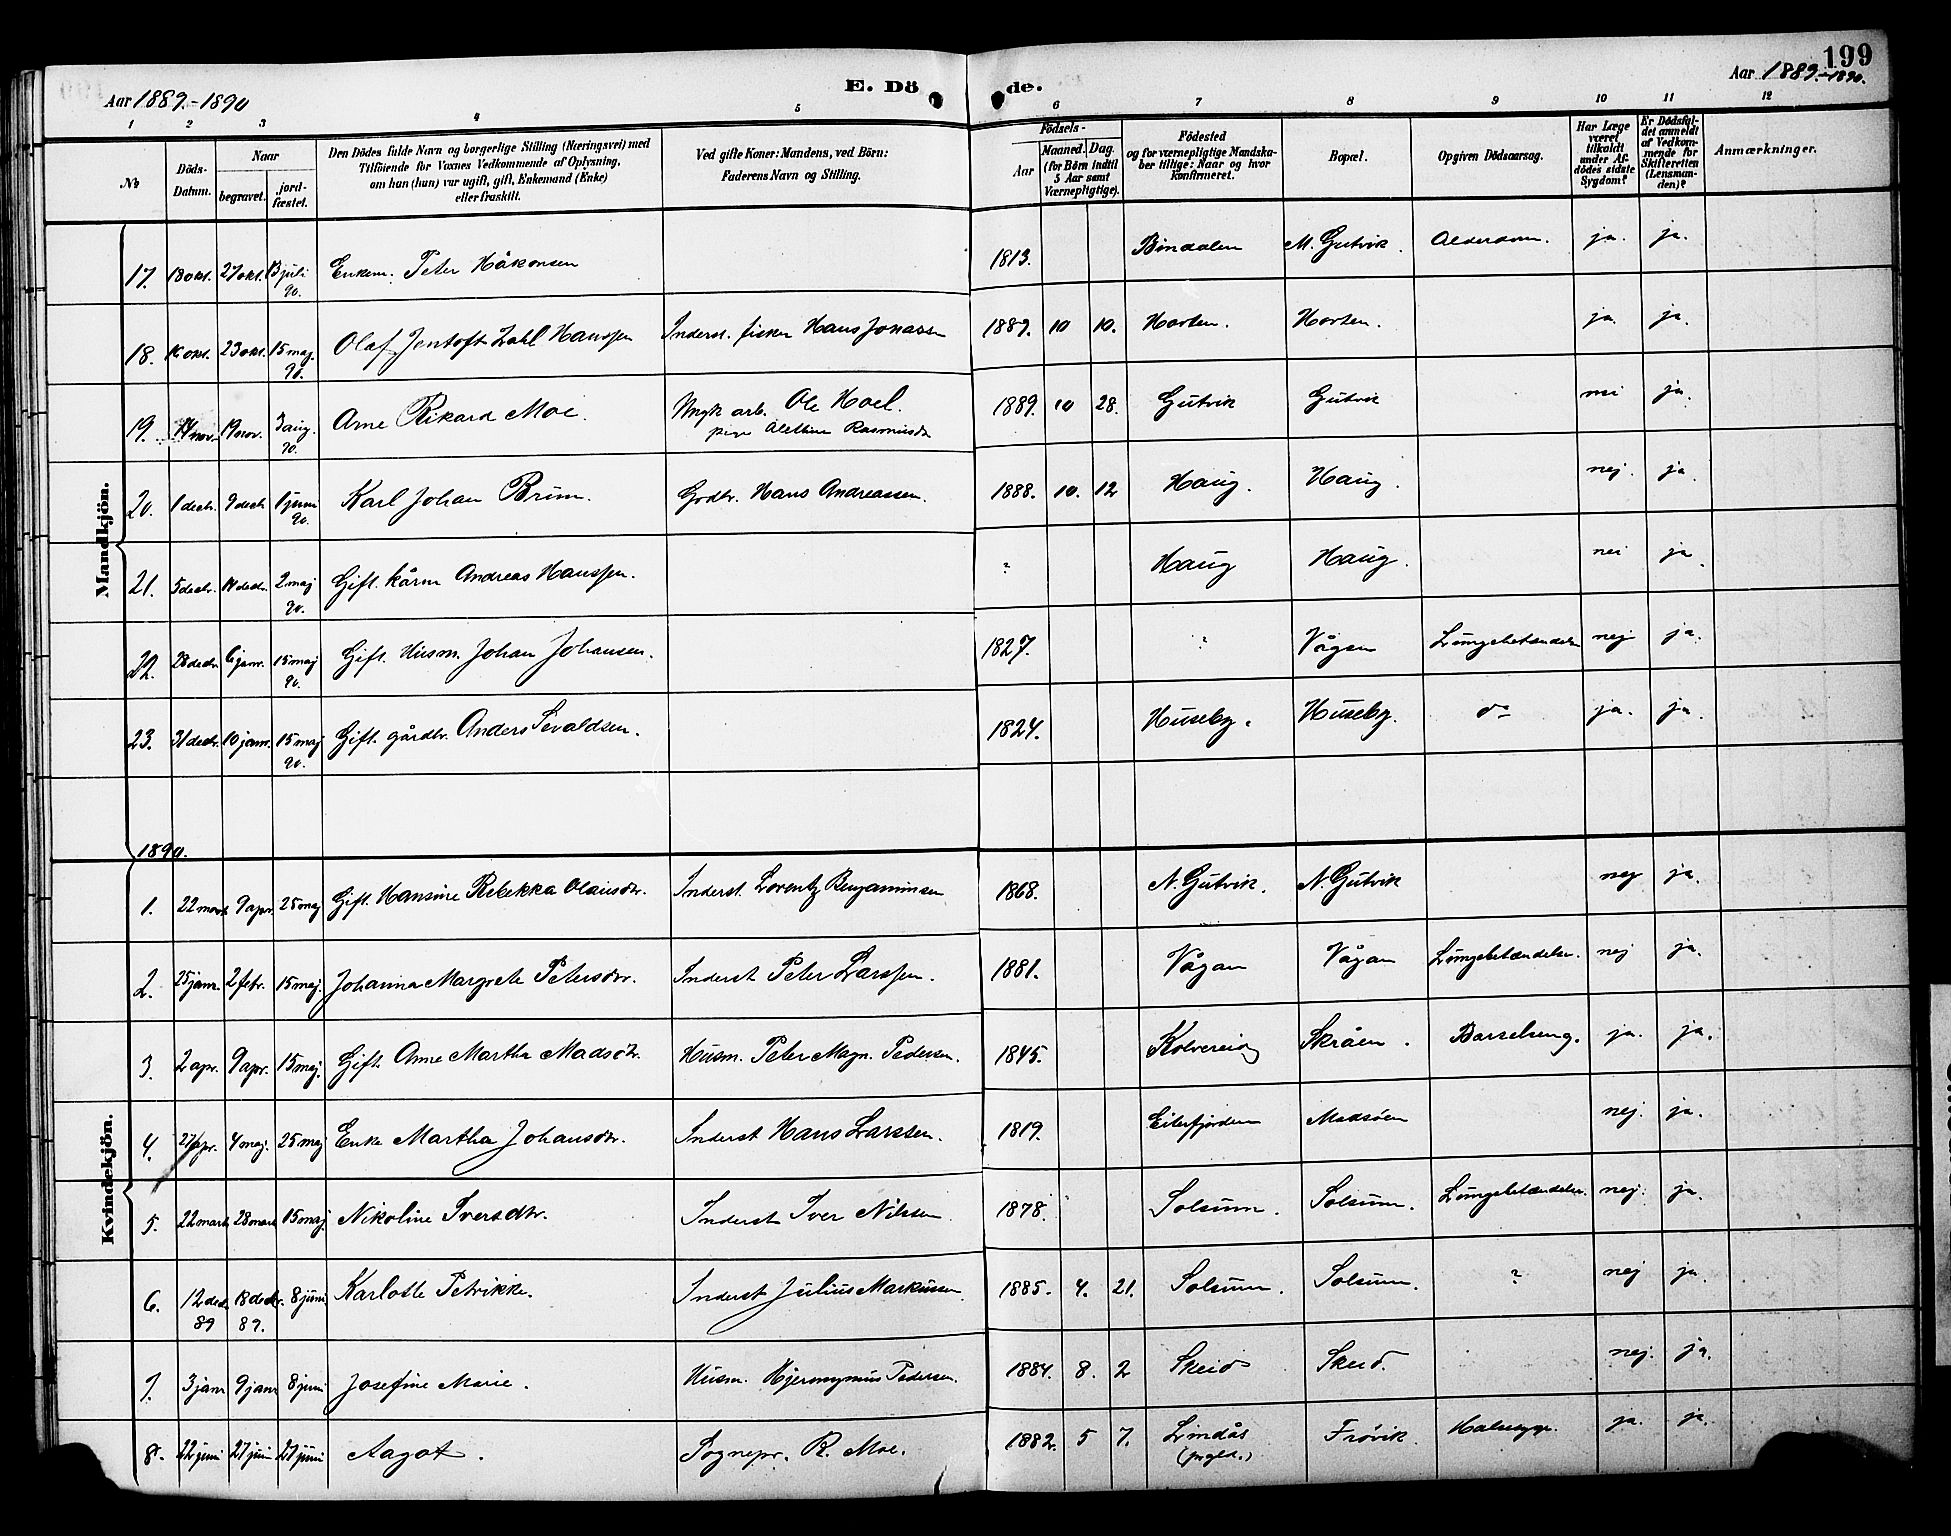 199
Aar 1889.-1890
E. Döde.
Aar 1889.-1890.
1 2 3 4 5 6 7 8 9 10 11 12
№
Döds-Datum.
Naar
begravet.
jord-fæstet.
Den Dödes fulde Navn og borgerlige Stilling (Næringsvei) med
Tilföiende for Voxnes Vedkommende af Oplysning,
om hun (han) var ugift, gift, Enkemand (Enke)
eller fraskilt.
Ved gifte Koner: Mandens, ved Börn:
Faderens Navn og Stilling.
Födsels-
Aar
Maaned. Dag.
(for Börn indtil
5 Aar samt
Værnepligtige).
Födested
og for værnepligtige Mandska-
ber tillige: Naar og hvor
konfirmeret.
Bopæl.
Opgiven Dödsaarsag.
Har Læge
været
tilkaldt
under Af-
dödes sidste
Sygdom?
Er Dödsfal-
det anmeldt
af Vedkom-
mende for
Skifteretten
(Lensman-
den)?
Anmærkninger.
Mandkjön.
17. 18 okt. 27 okt. 13 juli 90. Enkem. Peter Håkonsen 1813. Bindalen M. Gutvik. Alderdom. ja. ja.
18. 16 okt. 23 okt. 15 maj. 90. Olaf Jentoft Zahl Hanssen Inderst. fisker Hans Jonassen 1889. 10 10. Horten. Horten. ja. ja.
19. 14 nov. 19 nov. 3 aug. 90. Arne Rikard Moe Ungk. arb. Ole Hoel.
pige Alethine Rasmusdr 1889. 10 28. Gutvik Gutvik nei ja.
20. 1 decbr. 9 decb. 1 juni 90. Karl Johan Brun. Grdbr. Hans Andreassen. 1888. 10. 12 Haug. Haug. nej. ja
21. 5 decbr. 14 decbr. 2 maj 90. Gift. kårm Andreas Hanssen. ? Haug Haug. nei ja.
22. 28 decbr. 6 janr. 15 maj 90. Gift. Husm. Johan Johansen. 1827. ? Vågan Lungebetændelse nej ja.
23. 31 decbr. 10 janr. 15 maj 90. Gift. gårdbr. Anders Sevaldsen. 1824. Huseby. Huseby. do ja. ja.
Kvindekjön.
1890.
1. 22 marts 9 apr. 25 maj Gift. Hansine Rebekka Olausdr. Inderst. Lorentz Benjaminsen 1868. N. Gutvik. N. Gutvik nej ja.
2. 25 janr. 2 febr. 15 maj. Johanna Margrete Petersdr. Inderst Peter Larssen. 1881. Vågan Vågan Lungebetændelse. nej ja.
3. 2 apr. 9 apr. 15 maj. Gift. Ane Martha Madsdtr. Husm. Peter Magn. Pedersen. 1845. Kolvereid Skråen. Barselseng. ja. ja.
4. 27/apr. 4 maj. 25 maj Enke Martha Johansdtr. Inderst Hans Larssen. 1819. Eiterfjorden Madsøen nej. ja.
5. 22 marts 28 marts 15 maj Nikoline Iversdtr. Inderst Iver Nilsen. 1878. Solsum. Solsum. Lungebetændelse. nej. ja.
6. 12 decb. 89 18 decbr. 89. 8 juni Karlotte Petrikke. Inderst Julius Markussen 1885. 4. 21. Solsum. Solsum. ? nej ja.
7. 3 janr 9 janr 8 juni Josefine Marie. Husm. Hjeronymus Pedersen. 1884. 8. 2 Skeid Skeid. nej. ja.
8. 22 juni 27 juni 27 juni Aagot. Sognepr. R. Moe. 1882. 5 7. Lindås
(prgld.) Frøvik. Halssyge. ja. ja.